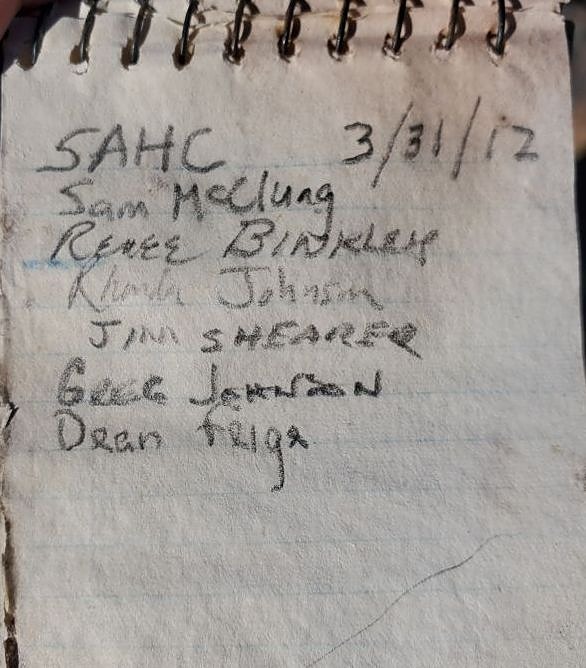 SAHC 3/31/12
Sam McClung
RENEE BINKLEY
Johnson
JIM SHEARER
GREG JOHNSON
Dean